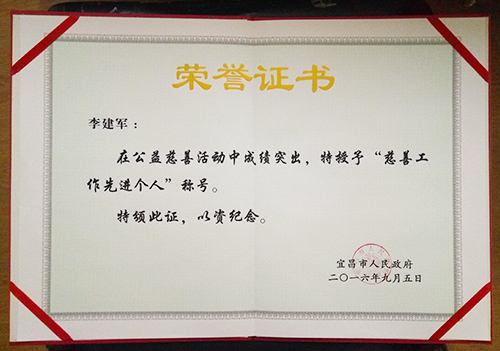 荣誉证书
李建军：
在公益慈善活动中成绩突出，特授予“慈善工
作先进个人”称号。
特颁此证，以资纪念。
宜昌市人民政府
二〇一六年九月五日